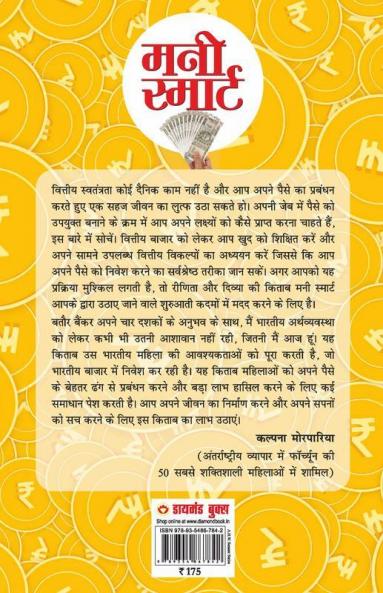 मनी
स्मार्ट
वित्तीय स्वतंत्रता कोई दैनिक काम नहीं है और आप अपने पैसे का प्रबंधन
करते हुए एक सहज जीवन का लुत्फ उठा सकते हो। अपनी जेब में पैसे को
उपयुक्त बनाने के क्रम में आप अपने लक्ष्यों को कैसे प्राप्त करना चाहते हैं,
इस बारे में सोचें। वित्तीय बाजार को लेकर आप खुद को शिक्षित करें और
अपने सामने उपलब्ध वित्तीय विकल्पों का अध्ययन करें जिससे कि आप
अपने पैसे को निवेश करने का सर्वश्रेष्ठ तरीका जान सकें। अगर आपको यह
प्रक्रिया मुश्किल लगती है, तो रीणिता और दिव्या की किताब मनी स्मार्ट
आपके द्वारा उठाए जाने वाले शुरुआती कदमों में मदद करने के लिए है।
बतौर बैंकर अपने चार दशकों के अनुभव के साथ, मैं भारतीय अर्थव्यवस्था
को लेकर कभी भी उतनी आशावान नहीं रही, जितनी मैं आज हूं। यह
किताब उस भारतीय महिला की आवश्यकताओं को पूरा करती है, जो
भारतीय बाजार में निवेश कर रही है। यह किताब महिलाओं को अपने पैसे
के बेहतर ढंग से प्रबंधन करने और बड़ा लाभ हासिल करने के लिए कई
समाधान पेश करती है। आप अपने जीवन का निर्माण करने और अपने सपनों
को सच करने के लिए इस किताब का लाभ उठाएं।
कल्पना मोरपारिया
(अंतर्राष्ट्रीय व्यापार में फॉर्च्यून की
50 सबसे शक्तिशाली महिलाओं में शामिल)
डायमंड बुक्स
Shop online at www.diamondbook.in
ISBN 978-93-5486-784-2
₹ 175